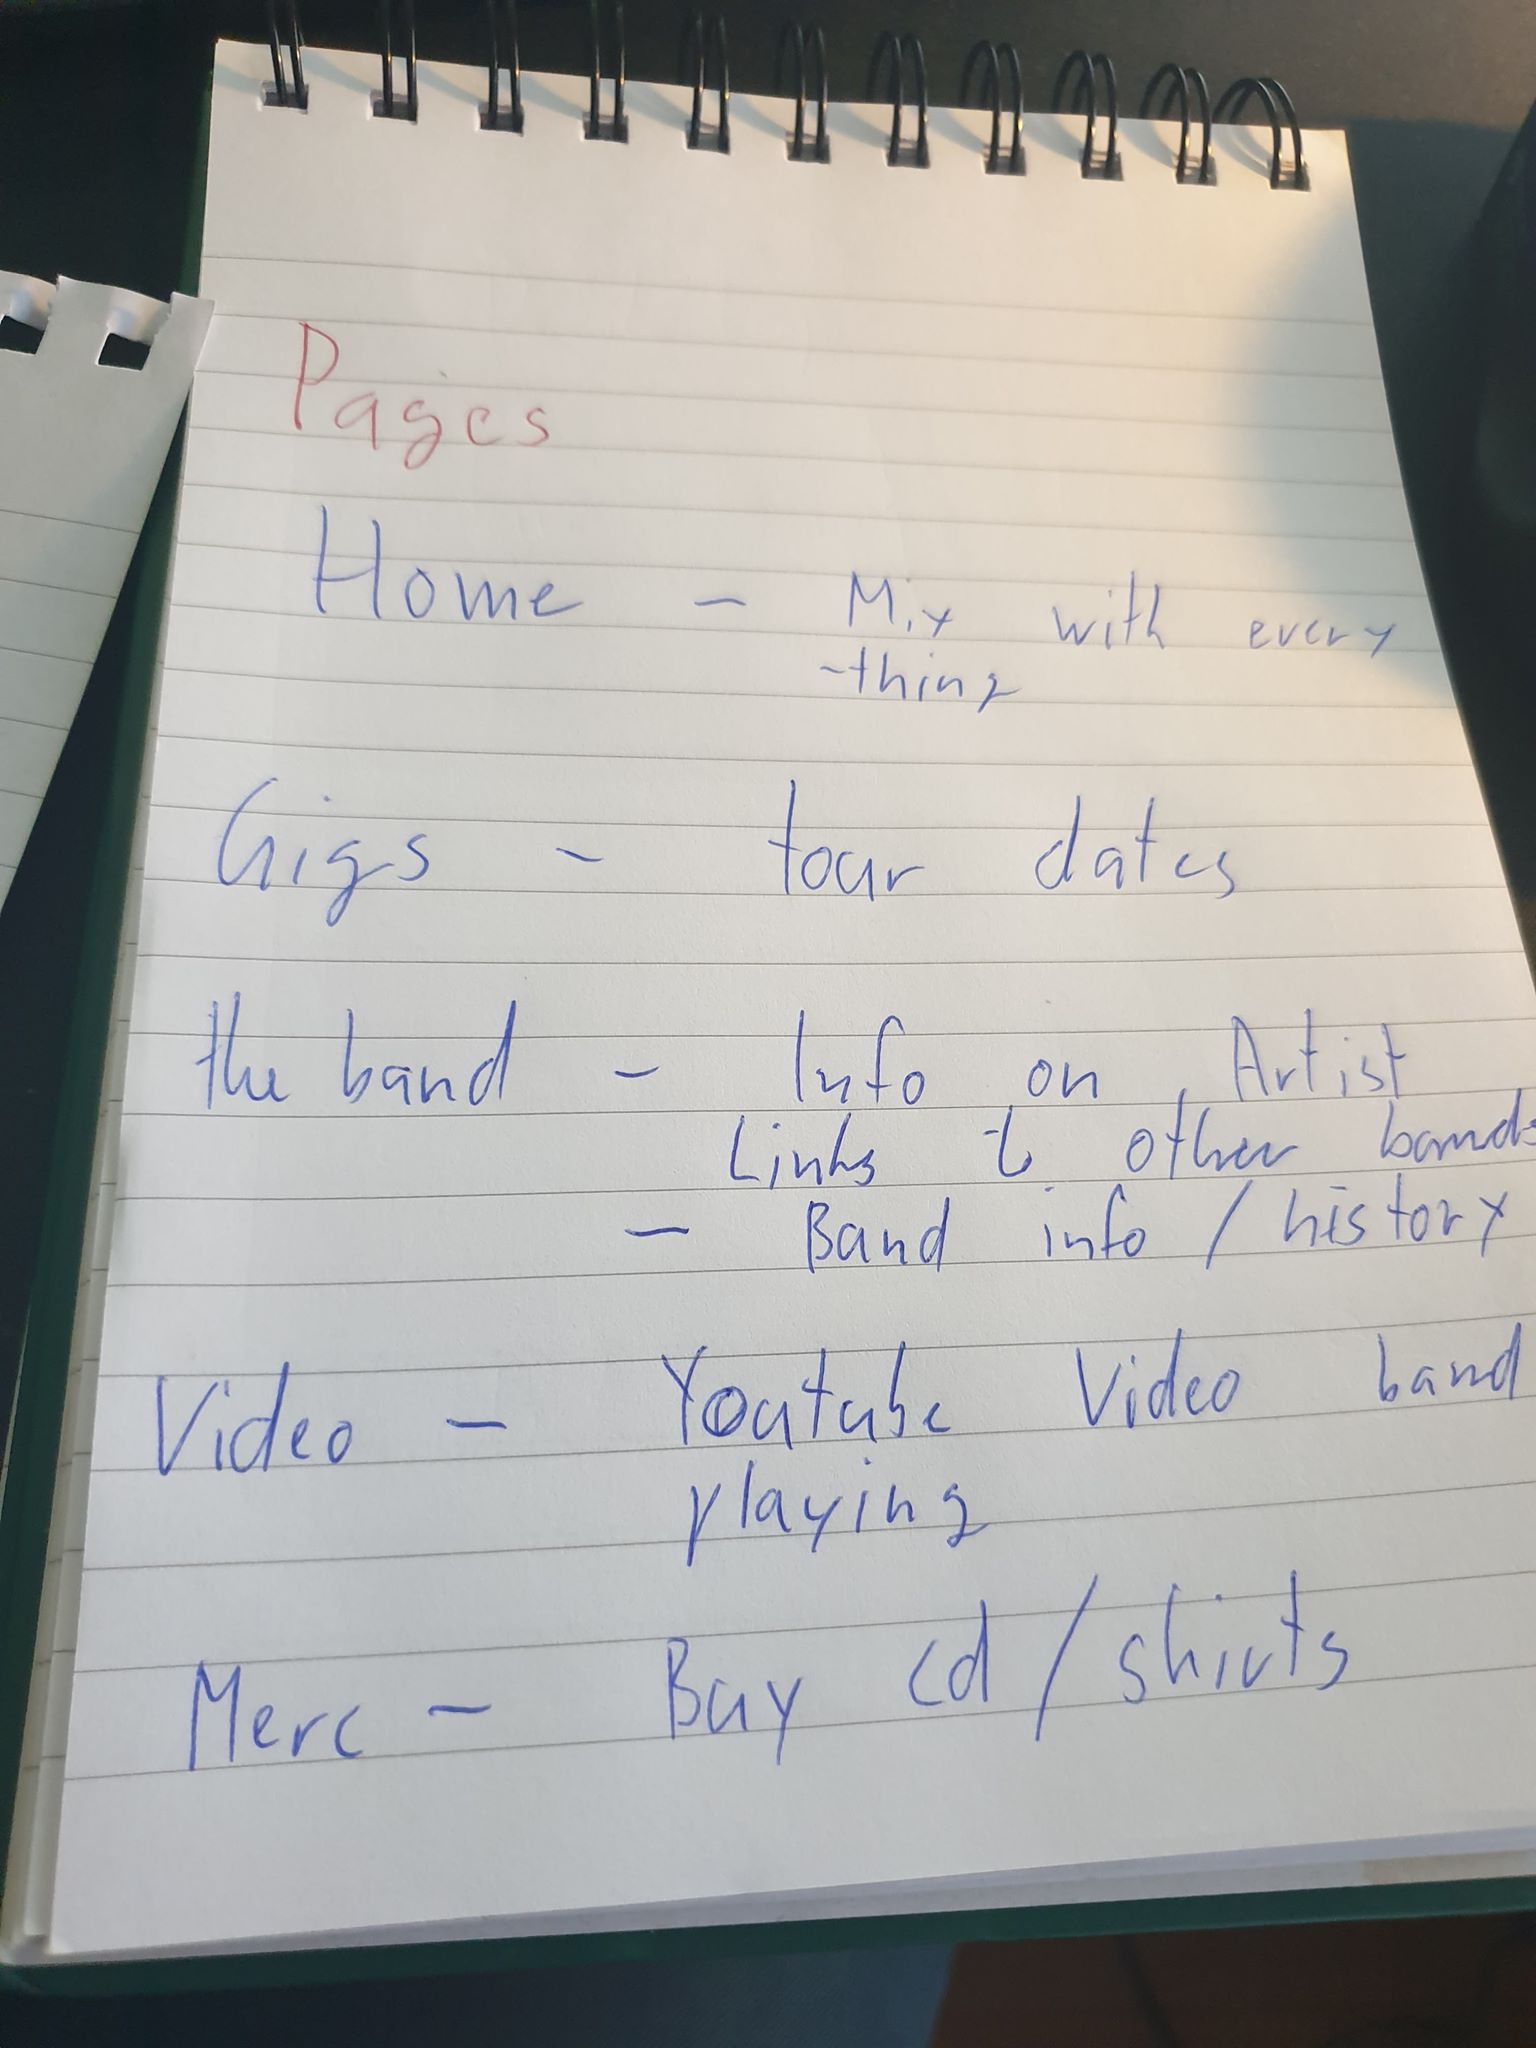 Pages
Home - Mix with every
-thing
Gigs - tour dates
the band - Info on Artist
Links to other bands
- Band info / history
Video - Youtube Video band
playing
Merc - Buy cd / shirts